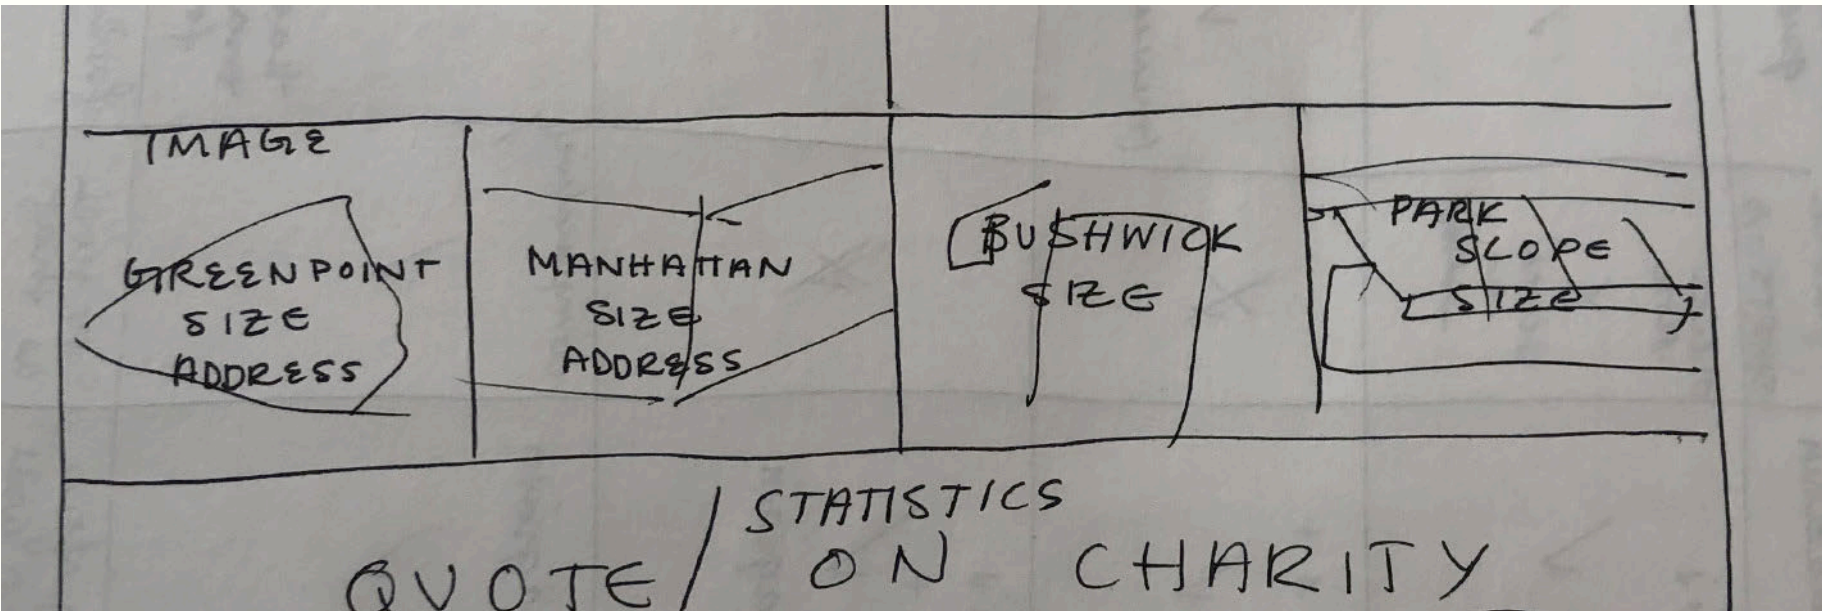 IMAGE
GREENPOINT
SIZE
ADDRESS
MANHATTAN
SIZE
ADDRESS
BUSHWICK
SIZE
PARK
SLOPE
SIZE
QUOTE / STATISTICS
ON CHARITY